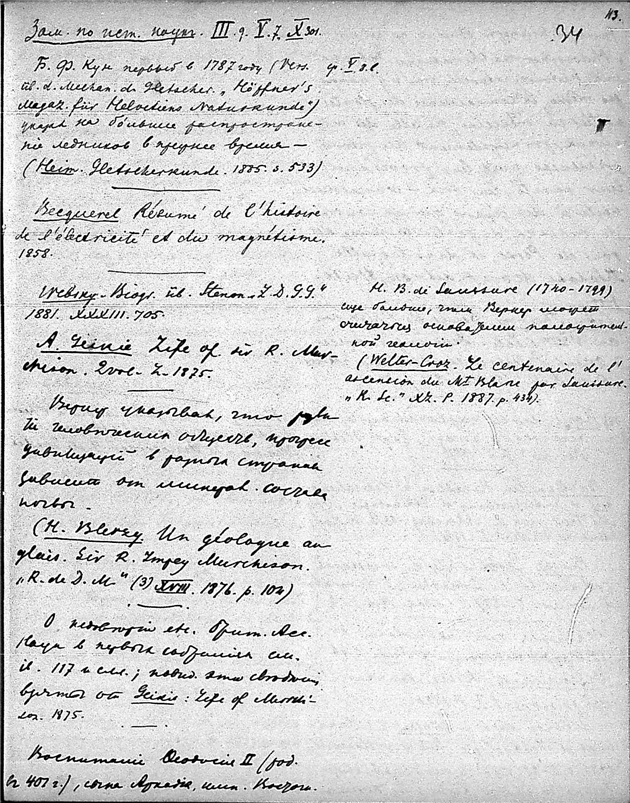 113.
34
Зам. по ист. наук. III. 9. V. 7. X 301.
Б. Ф. Кун первый в 1787 году (Vers.
üb. d. Mechan. de Gletscher. „Höpfner's
Magaz. für Helvetiens Naturkunde")
указал на большее распростране-
ние ледников в прежнее время —
(Heim. Gletscherkunde. 1885. S. 533)
ср. V
Becquerel Résumé de l'histoire
de l'électricité et du magnétisme.
1858.
Websky. Biogr. üb. Stenon „Z. D. G. G."
1881. XXXIII. 705.
A. Geikie Life of sir R. Mur-
chison. 2 vol. L. 1875.
Вернер указывал, что
человеческих обществ, прогресс
цивилизаций в разных странах
зависит от минерал. состава
почвы.
(H. Blerzy Un géologue an-
glais. Sir R. Impey Murchison.
„R. de D. M" (3) XVIII. 1876. p. 104)
О etc. Брит. Асс.
Наук в первых собраниях см.
117 и сл.;
от Geikie: Life of Murchi-
son. 1875.
Воспитание Феодосия II (род.
в 401 г.), сына Аркадия, имп. Восточ.
H. B. de Saussure (1740-1799)
еще больше, чем Вернер может
считаться основателем положитель-
ной геологии.
(Welter-Croz. Le centenaire de l'
ascension du Mt Blanc par Saussure.
„R. Sc." XL. P. 1887. p. 434).